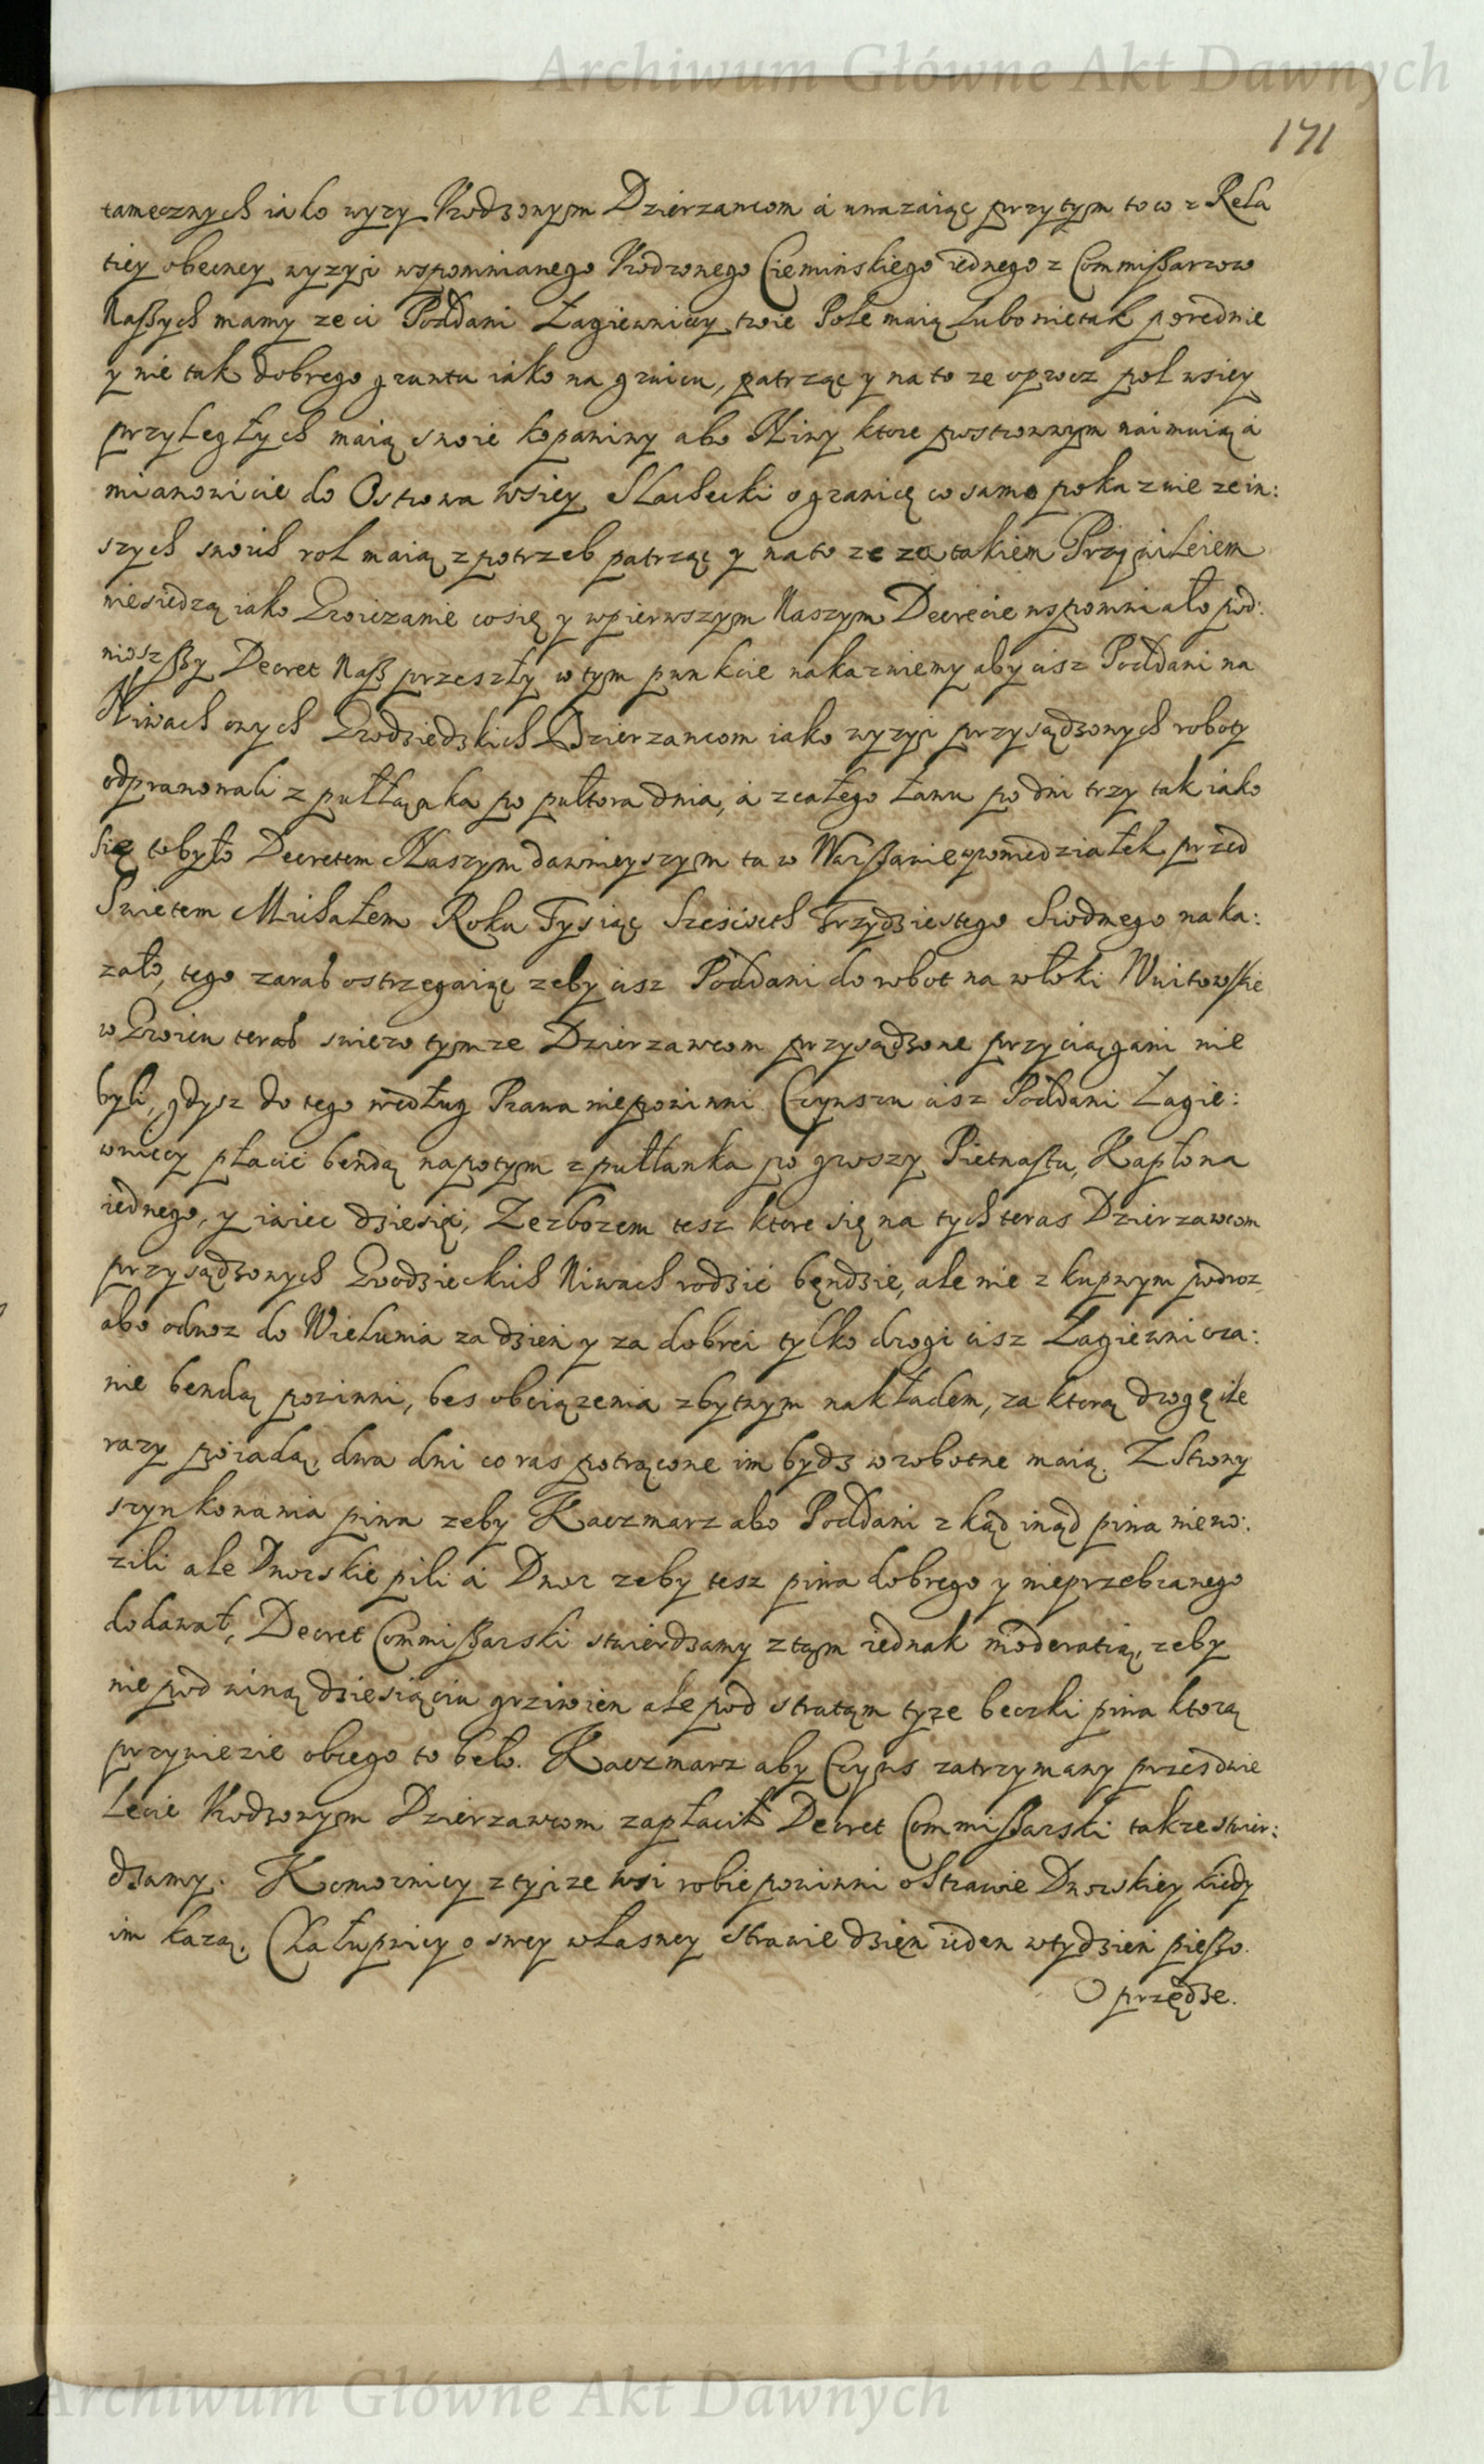 Archiwum Główne Akt Dawnych
171
tamecznych iako wyzy Urodzonym Dzierzawcom á uwazaiąc przytym to co z Rela
tiey obecney wyzyi wspomnianego Urodzonego Ciemińskiego iednego z Commißarzow
Naßych mamy ze ci Poddani Łagiewniccy troie Pole maią lubo nie tak porednie
y nie tak dobrego gruntu iako na gruicu, patrząc y na to ze oprocz pol wsiey
przyległych maią swoie kopaniny abo Niwy ktore postronnym naimuią á
mianowicie do Ostrowa wsiey Slachecki o granicę co samo pokazuie ze in:
szych swoich rol maią z potrzeb patrząc y na to ze za takiem Przywileiem
niesiedzą iako Groiczanie cosię y wpierwszym Naszym Decrecie wspomniało pod:
niosßy Decret Naß przeszły w tym punkcie nakazuiemy aby cisz Poddani na
Niwach onych Grodzieckich Dzierzawcom iako wyzyi przysądzonych roboty
odprawowali z pułłąnka po pułtora dnia, á z całego Łanu po dni trzy tak iako
się to było Decretem Naszym dawnieyszym ta w Warßawie wponiedziałek przed
Swietem Michałem Roku Tysiąc Sześcseth Trzydziestego Siodmego naka:
zało, tego zaras ostrzegaiąc zeby cisz Poddani do robot na włoki Wuitowskie
w Groicu teras swiezo tymze Dzierzawcom przysądzone przyciągani nie
byli, gdysz do tego według Prawa niepowinni. Czynszu cisz Poddani Łagie:
wniccy płacić bendą napotym z pułłanka po groszy Pietnastu, Kapłona
iednego, y iaiec dziesięć, Ze zbozem tesz ktore się na tych teras Dzierzawcom
przysądzonych Grodzieckich Niwach rodzić bęndzie, ale nie z kupnym podroz
abo odwoz do Wielunia za dzień y za dobrei tylko drogi cisz Łagiewnicza:
nie bendą powinni, bes obciązenia zbytnym nakładem, za ktorą drogę ile
razy poiadą, dwa dni coras potrącone im bydz w robotne maią. Z Strony
szynkowania piwa zeby Kaczmarz abo Poddani z kąd inąd piwa niewo:
zili ale Dworskie pili á Dwor zeby tesz piwa dobrego y nieprzebranego
dodawał, Decret Commißarski stwierdzamy z tym iednak moderatią, zeby
nie pod winą dziesiąciu grziwien ale pod stratąm tyze beczki piwa ktorą
przywiezie obcego to beło. Kaczmarz aby Czyns zatrzymany przes dwie
lecie Urodzonym Dzierzawcom zapłacił Decret Commißarski takze stwier:
dzamy. Komornicy z tyize wsi robic powinni o Strawie Dworskiey kiedy
im kazą, Chałupnicy o swey własney strawie dzień ieden wtydzień pießo.
O przędze.
Archiwum Główne Akt Dawnych